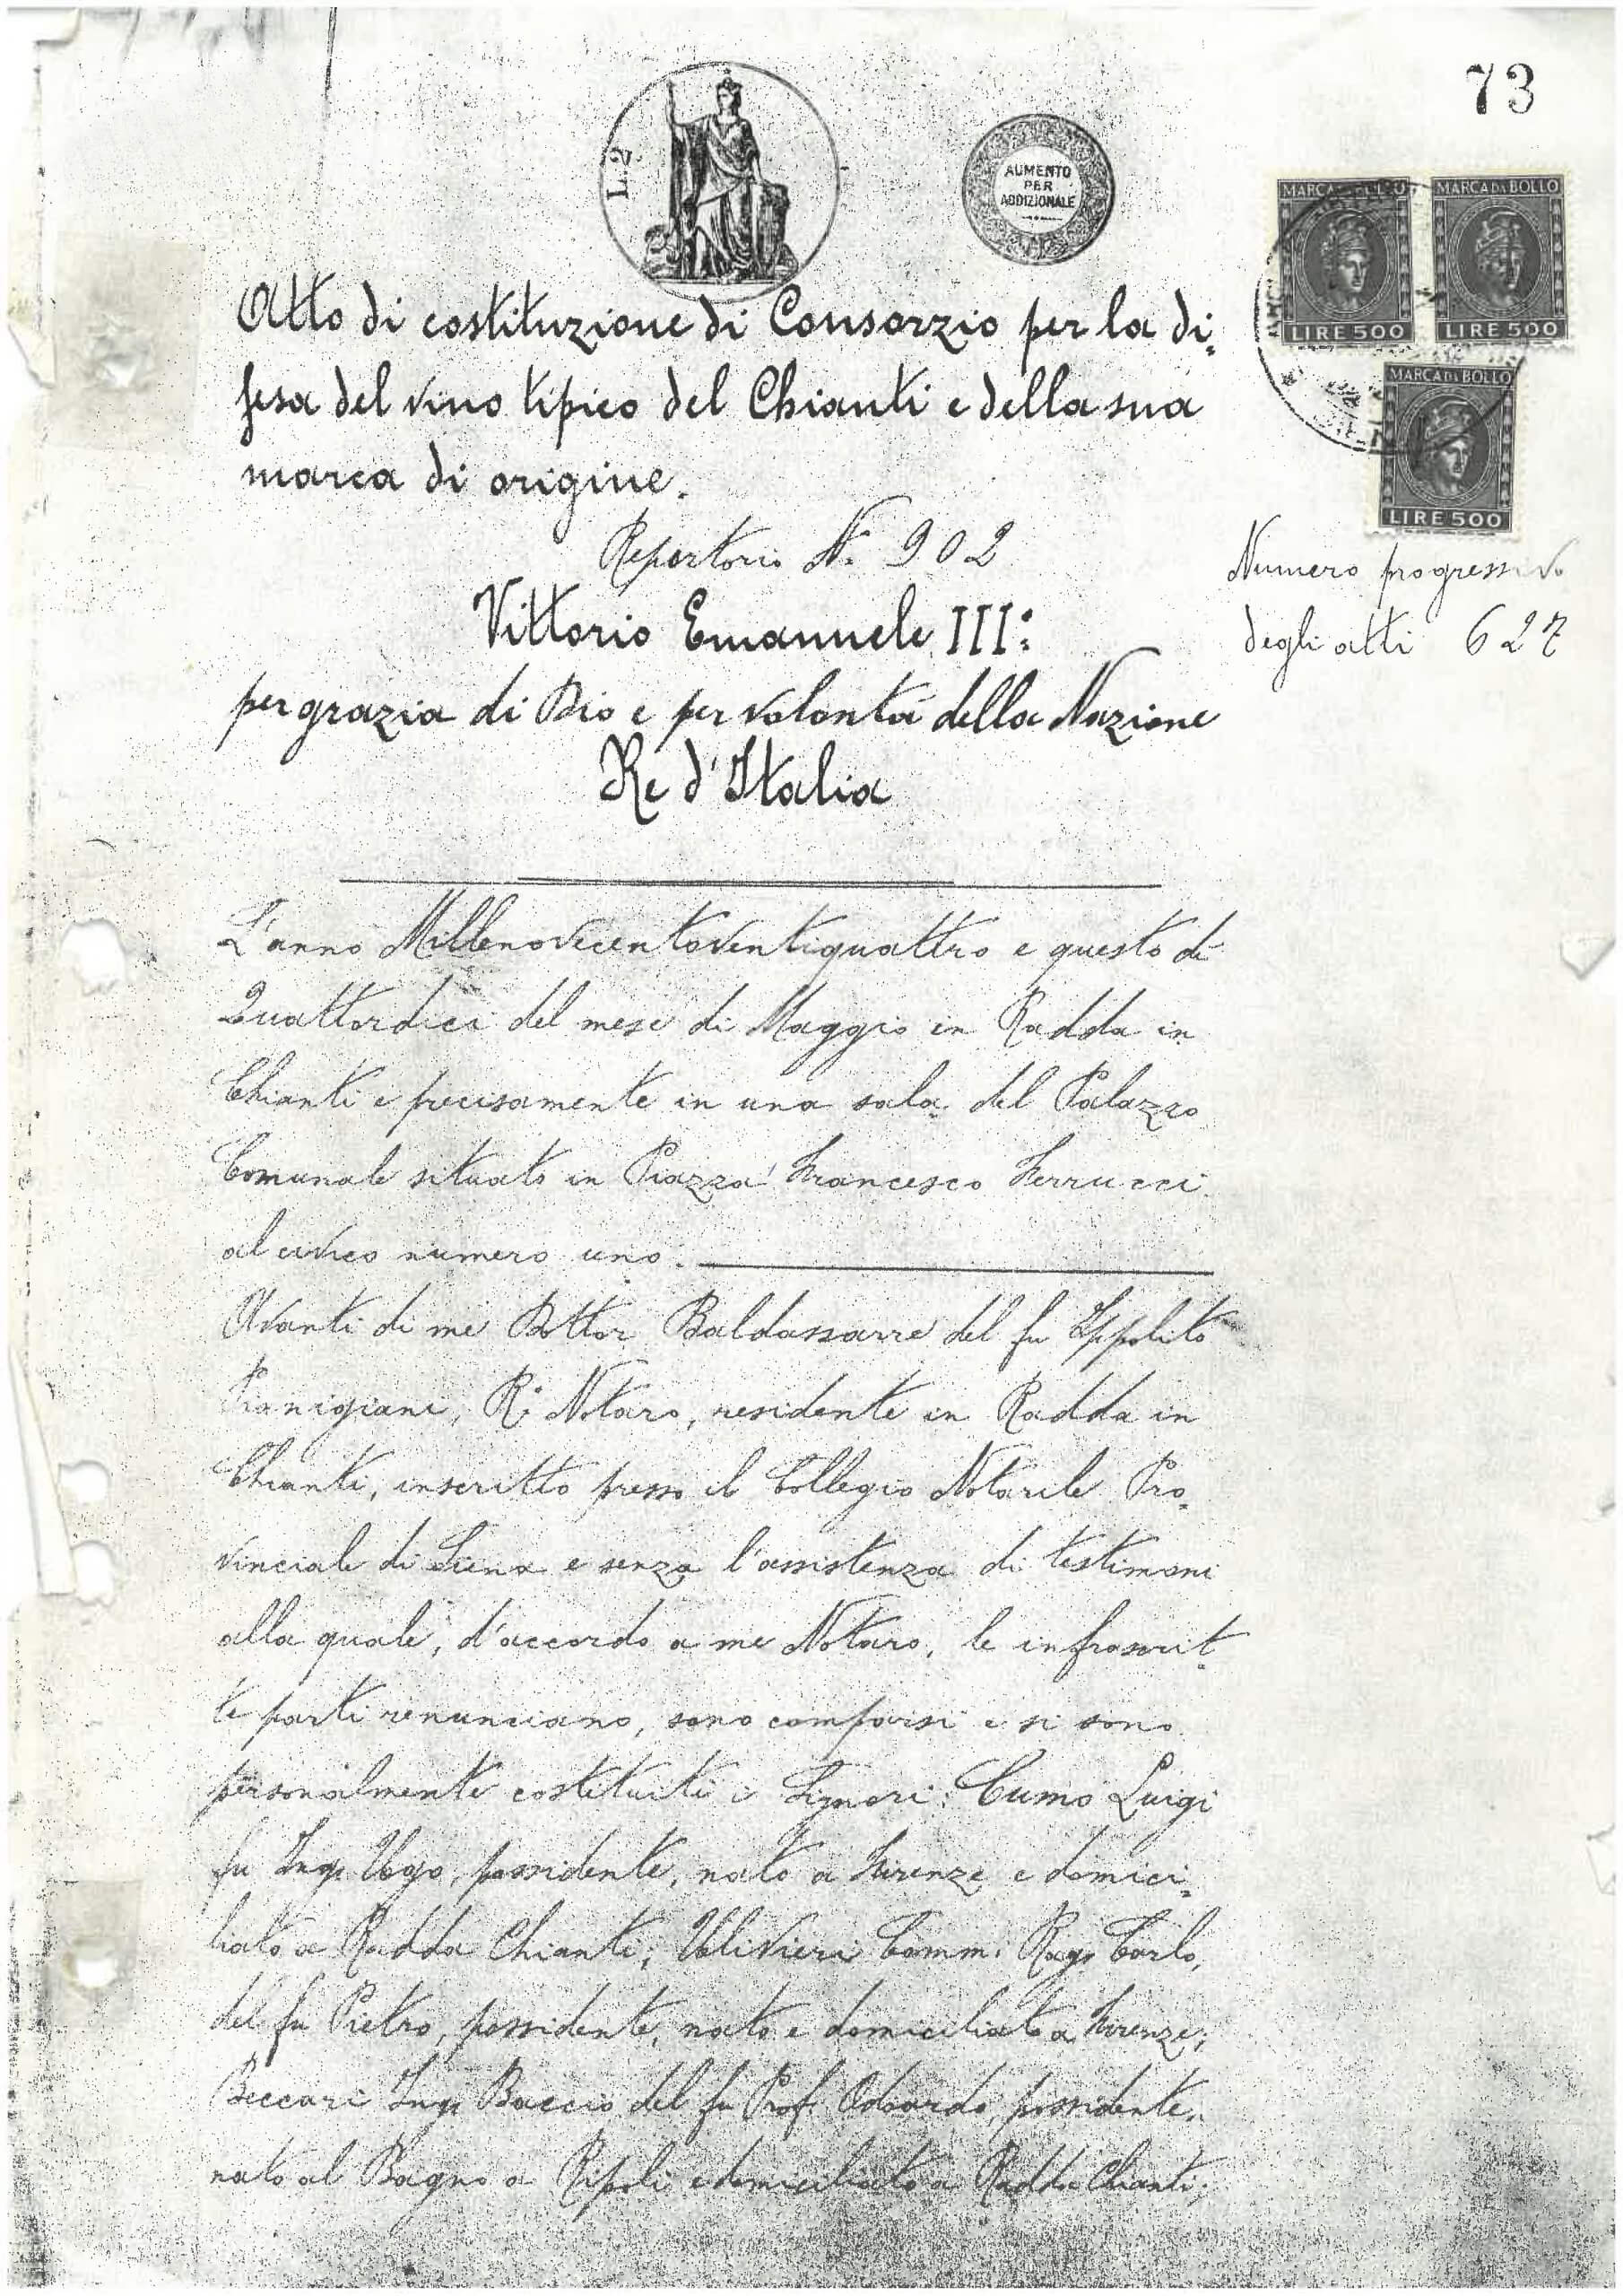 73
L. 2
AUMENTO
PER
ADDIZIONALE
MARCA DA BOLLO
LIRE 500
MARCA DA BOLLO
LIRE 500
MARCA DA BOLLO
LIRE 500
Atto di costituzione di Consorzio per la di=
fesa del vino tipico del Chianti e della sua
marca di origine.
Repertorio N. 902
Numero progressivo
degli atti 627
Vittorio Emanuele III:
per grazia di Dio e per volontà della Nazione
Re d'Italia
L'anno Millenovecentoventiquattro e questo dì
Quattordici del mese di Maggio in Radda in
Chianti e precisamente in una sala del Palazzo
Comunale situato in Piazza Francesco Ferrucci
al civico numero uno.
Avanti di me Dottor Baldassarre del fu Ippolito
Pianigiani, R. Notaro, residente in Radda in
Chianti, inscritto presso il Collegio Notarile Pro=
vinciale di Siena e senza l'assistenza di testimoni
alla quale, d'accordo a me Notaro, le infrascrit=
te parti renunciano, sono comparsi e si sono
personalmente costituiti i Signori: Cumo Luigi
fu Ing. Ugo, possidente, nato a Firenze e domici=
liato a Radda Chianti; Ulivieri Comm. Rag. Carlo,
del fu Pietro, possidente, nato e domiciliato a Firenze;
Beccari Ing. Baccio del fu Prof. Odoardo, possidente,
nato al Bagno a Ripoli e domiciliato a Radda Chianti;